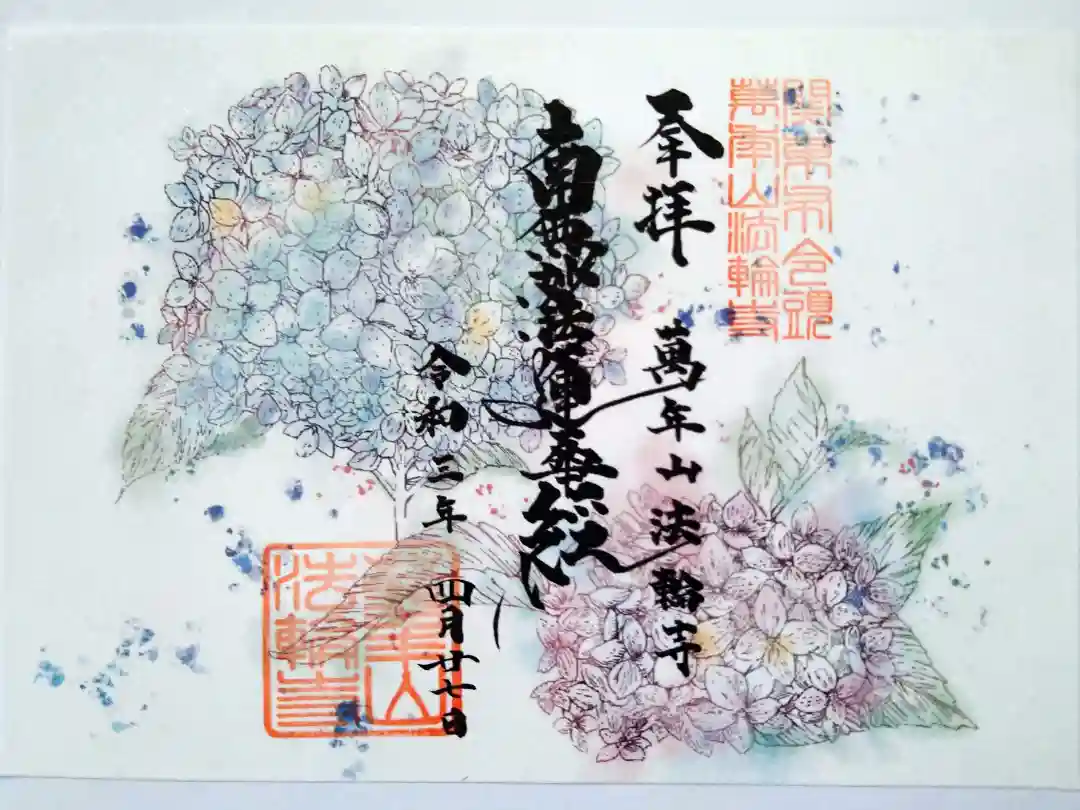 関東布令頭
萬年山法輪寺
奉拝 萬年山法輪寺
南無妙法蓮華経
令和三年四月廿七日
萬年山
法輪寺